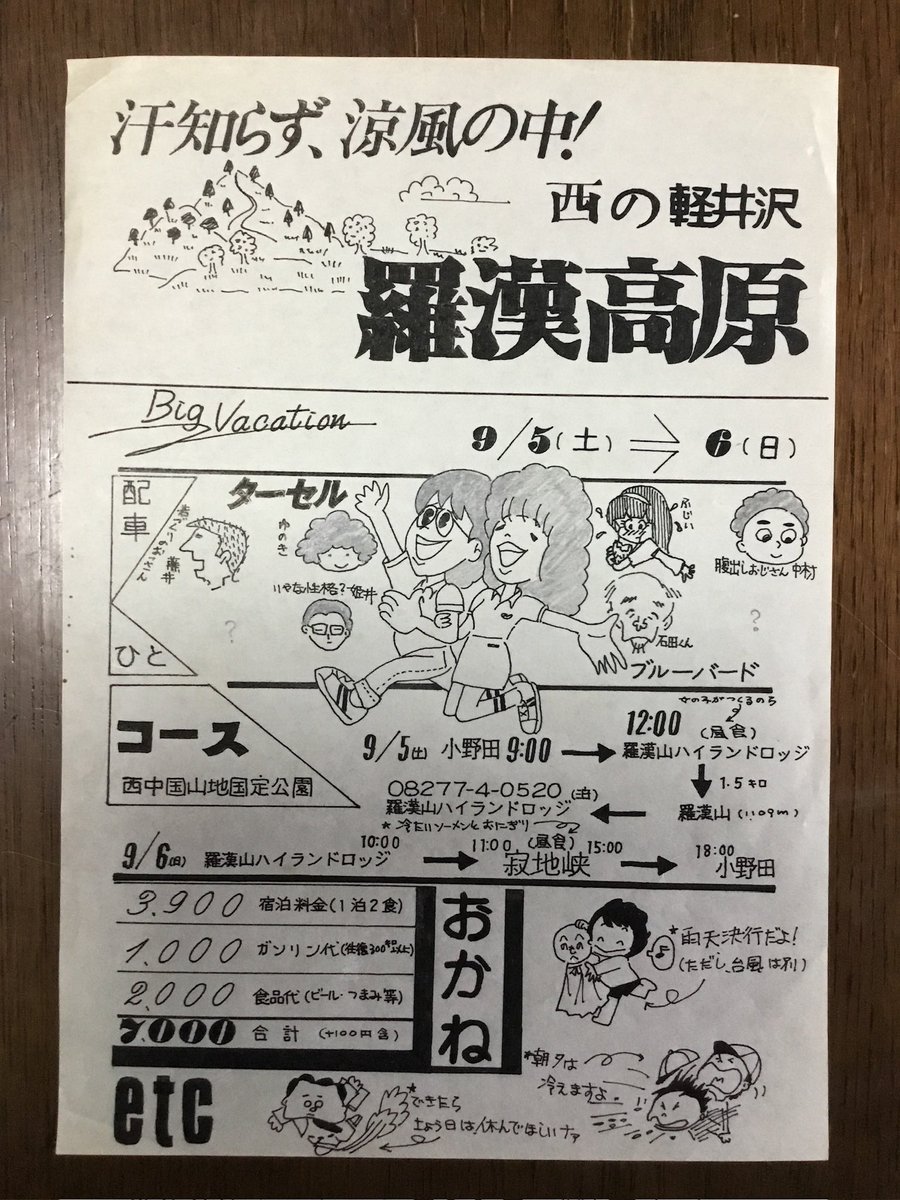 汗知らず、涼風の中!
西の軽井沢
羅漢高原
Big Vacation
9/5(土) ⇒ 6(日)
配車
ひと
ターセル
藤井
ゆのき
いやな性格?姫井
?
ふじい
腹出しおじさん 中村
石田くん
?
ブルーバード
コース
西中国山地国定公園
9/5(土) 小野田 9:00 → 12:00 (昼食)
羅漢山ハイランドロッジ
↓ 1.5キロ
羅漢山 (1109m)
←
08277-4-0520 (泊)
羅漢山ハイランドロッジ
*冷たいソーメンとおにぎり
9/6(日) 羅漢山ハイランドロッジ 10:00 → 11:00 (昼食) 15:00 寂地峡 → 18:00 小野田
おかね
3.900 宿泊料金(1泊2食)
1.000 ガソリン代(往復300キロ以上)
2.000 食品代(ビール・つまみ等)
7.000 合計 (+100円含)
*雨天決行だよ!
(ただし、台風は別)
♪
etc
*できたら
土よう日は、休んでほしいナァ
*朝夕は
冷えますよ。